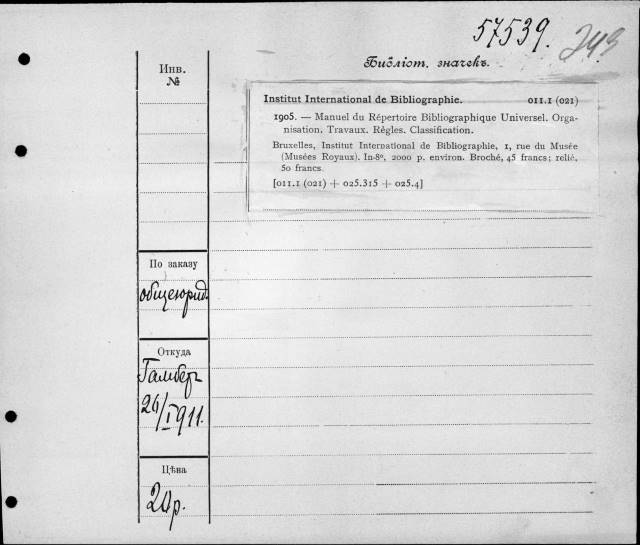 57539. 243
Библіот. значекъ.
Инв.
№
Institut International de Bibliographie. 011.1 (021)
1905. — Manuel du Répertoire Bibliographique Universel. Orga-
nisation. Travaux. Règles. Classification.
Bruxelles, Institut International de Bibliographie, 1, rue du Musée
(Musées Royaux). In-8º, 2000 p. environ. Broché, 45 francs; relié,
50 francs.
[011.1 (021) + 025.315 + 025.4]
По заказу
общеюрид.
Откуда
Гамбер
26/I 911.
Цѣна
20 р.